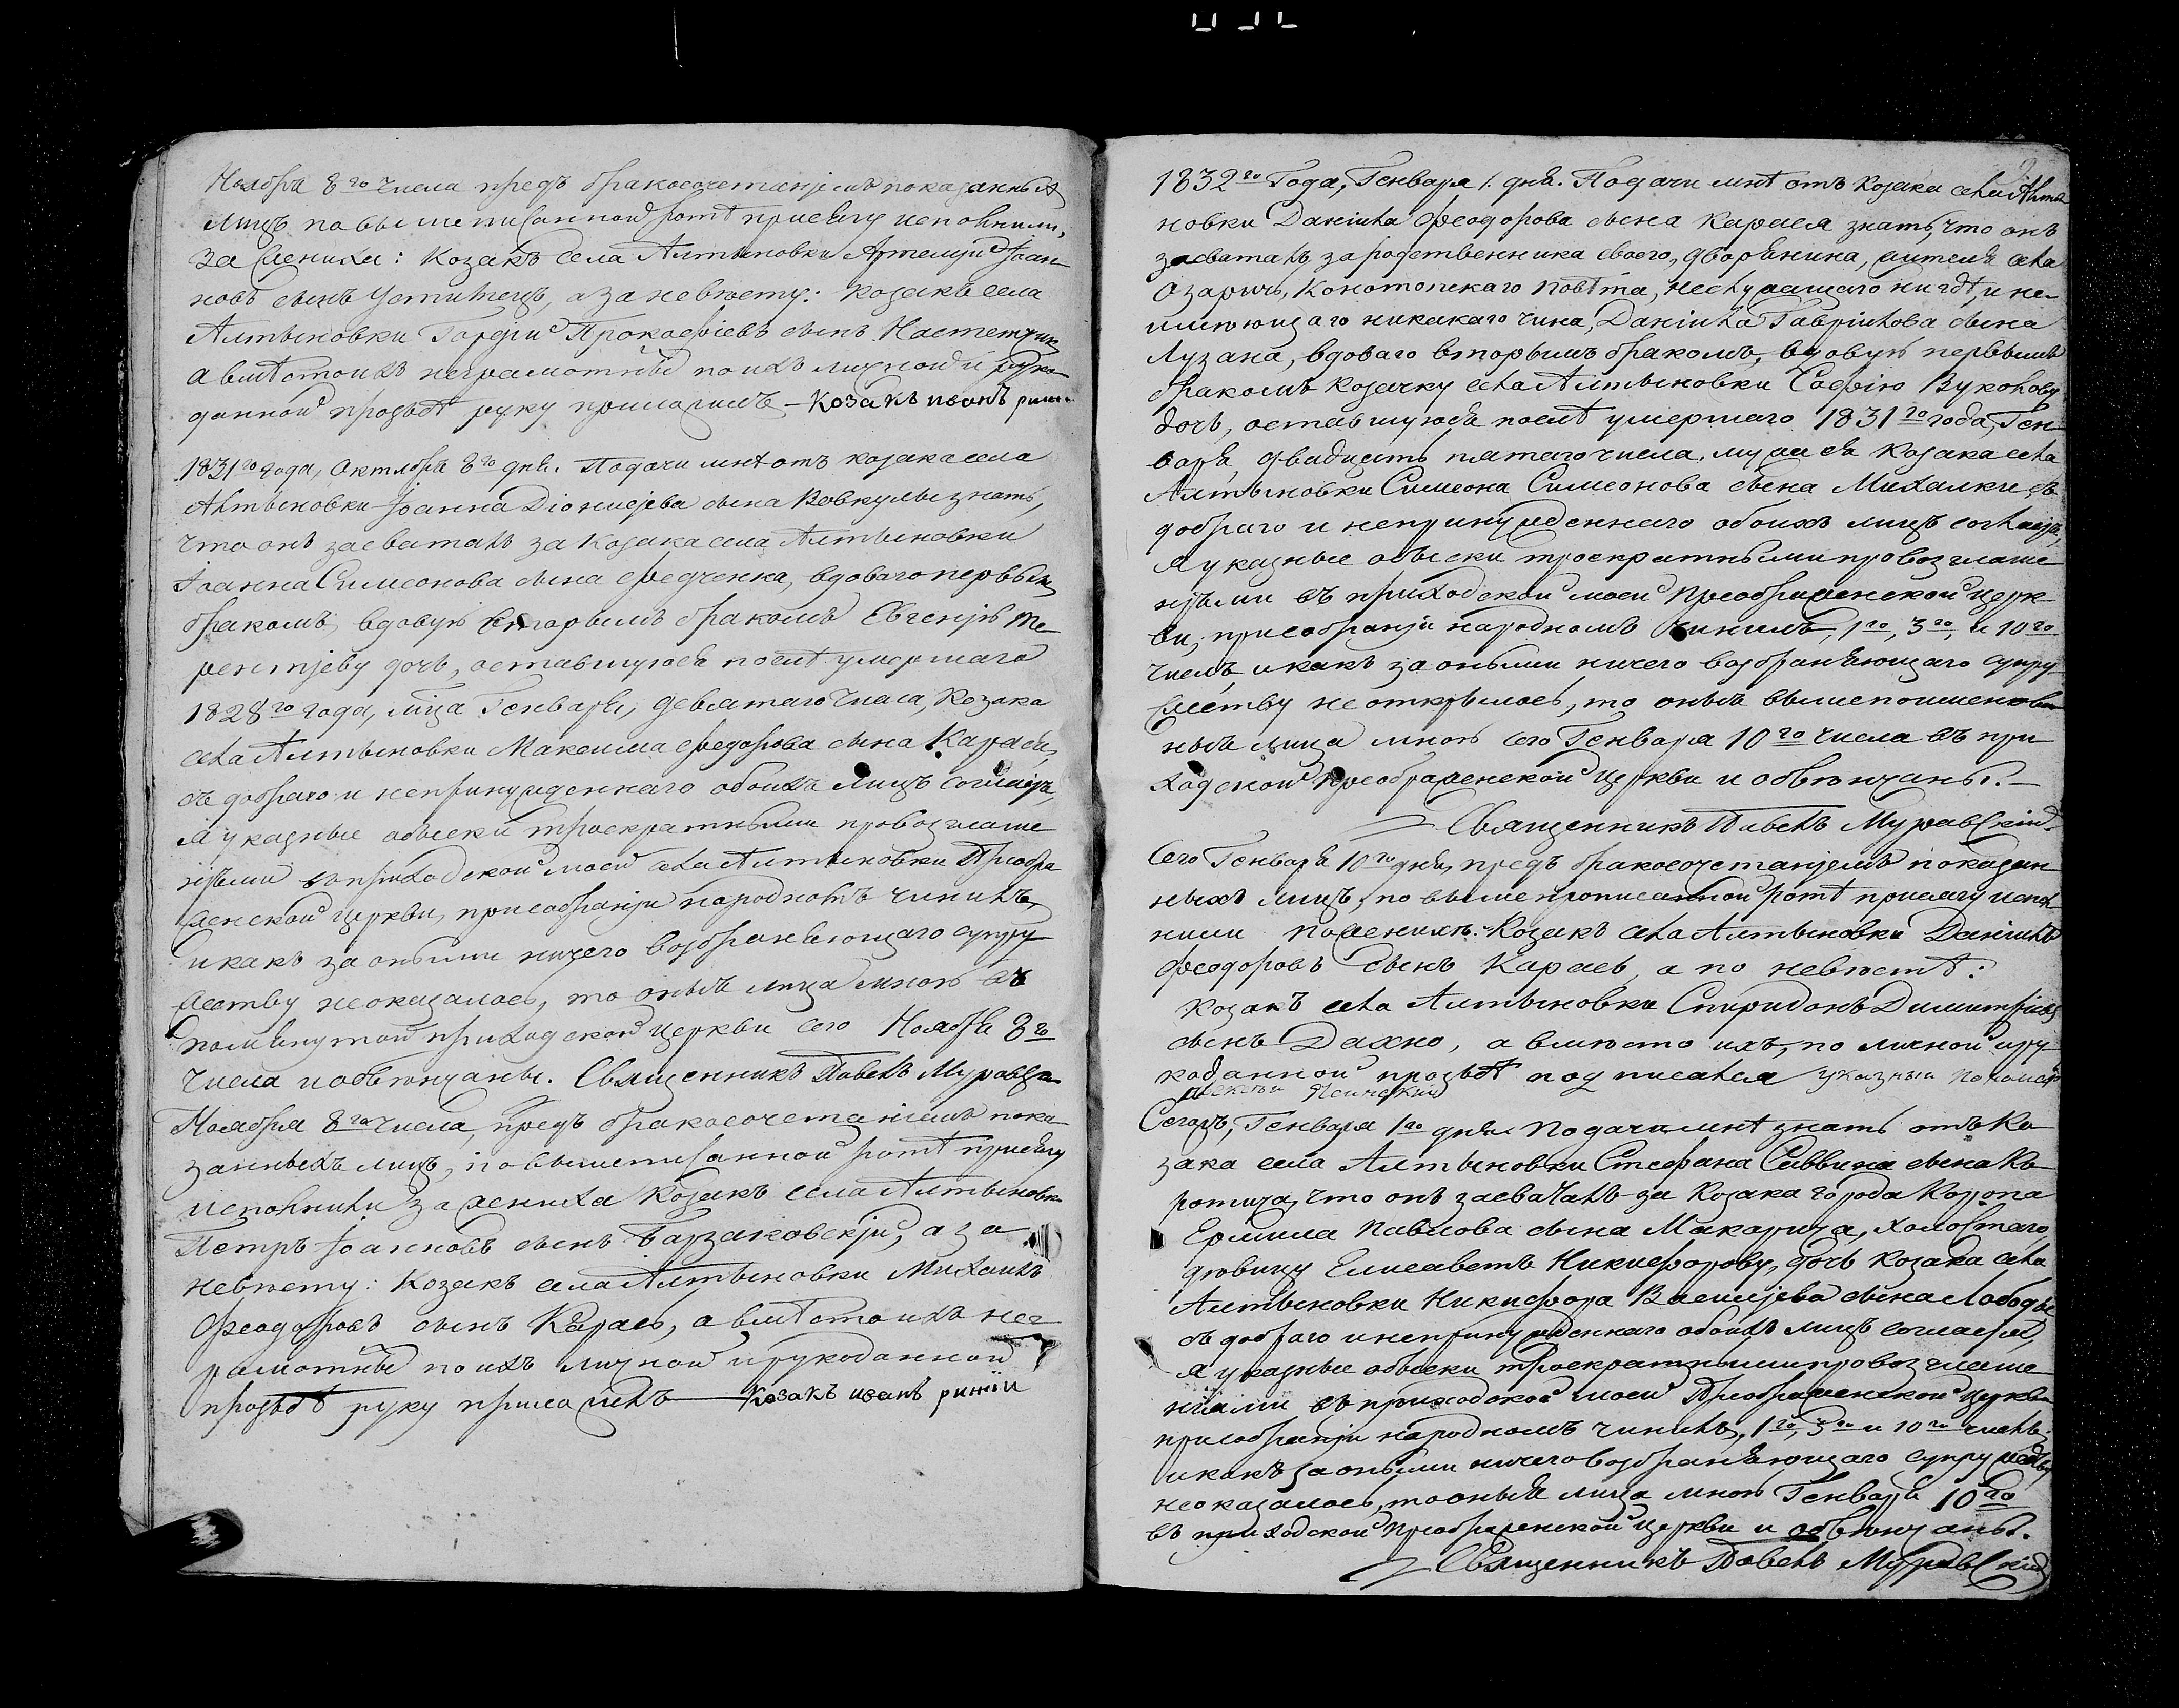 Ноября 8го числа предъ бракосочетанјемъ показанныхъ
лицъ по вышеписанной ротѣ присягу исполнили,
За жениха: Козакъ села Алтыновки Артемјй Јоан-
новъ сынъ Устименъ, а за невѣсту: козакъ села
Алтыновки Гордѣй Прокофіевъ сынъ
а вмѣсто ихъ неграмотныхъ по ихъ личной и руко-
данной прозьбѣ руку приложилъ – Козакъ иванъ
1831го года, Октября 8го дня. Подачи мнѣ отъ козака села
Алтыновки Јоанна Діонисјева сына Вовкулы знать,
что онъ засваталъ за Козака села Алтыновки
Јоанна Симеонова сына Федченка, вдоваго первымъ
бракомъ, вдову вторымъ бракомъ Евгенјю Те-
рентјеву дочь, оставшуюся послѣ умершаго
1828го года, мца Генваря, девятаго числа, Козака
села Алтыновки Максима Федорова сына Карася,
съ добраго и непринужденнаго обоихъ лицъ согласјя,
я указные обыски троекратными провозглаше-
нјями въ приходской моей села Алтыновки Преобра-
женской церкви, при собранји народномъ чинилъ,
и какъ за оными ничего возбраняющаго супру-
жеству не оказалось, то оныя лица мною въ
помянутой приходской церкви сего Ноября 8го
числа и обвѣнчаны. Священникъ Павелъ
Ноября 8го числа, предъ бракосочетанјемъ пока-
занныхъ лицъ, по вышеписанной ротѣ присягу
исполнили за жениха Козакъ села Алтыновки
Петръ Јоанновъ сынъ Барзаковскјй, а за
невѣсту: Козакъ села Алтыновки Михаилъ
Феодоровъ сынъ Карась, а вмѣсто ихъ нег-
рамотныхъ по ихъ личной и рукоданной
прозьбѣ руку приложилъ — Козакъ иванъ рижіи
1832го Года, Генваря 1. дня. Подачи мнѣ отъ Козака села Алты-
новки Даніила Феодорова сына Карася знать, что онъ
засваталъ за родственника своего, дворянина, жителя села
Озаричъ, Конотопскаго повѣта, неслужащаго нигдѣ, и не-
имѣющаго никакаго чина, Даніила Гавріилова сына
Лузана, вдоваго вторымъ бракомъ, вдову первымъ
бракомъ козачку села Алтыновки Софію Вуколову
дочь, оставшуюся послѣ умершаго 1831го года, Ген-
варя, двадцать пятаго числа, мужа ея Козака села
Алтыновки Симеона Симеонова сына Михалки, съ
добраго и непринужденнаго обоихъ лицъ согласјя,
я указные обыски троекратными провозглаше-
нјями въ приходской моей Преображенской церк-
ви, при собранји народномъ чинилъ, 1го, 3го, и 10го
числъ, и какъ за оными ничего возбраняющаго супру-
жеству не открылось, то оныя вышепоименован-
ныя лица мною сего Генваря 10го числа въ при-
ходской Преображенской Церкви и обвѣнчаны. –
Священникъ Павелъ Муравскій.
Сего Генваря 10го дня, предъ бракосочетанјемъ показан-
ныхъ лицъ, по вышепрописанной ротѣ присягу испол-
нили по женихѣ: Козакъ села Алтыновки Даніилъ
Феодоровъ сынъ Карась, а по невѣстѣ:
Козакъ села Алтыновки Спиридонъ Димитріевъ
сынъ Дахно, а вмѣсто ихъ, по личной и ру-
коданной прозьбѣ подписался указный пономарь
Алексѣй
Сегожъ, Генваря 1го дня. Подачи мнѣ знать отъ Ко-
зака села Алтыновки Стефана Саввина сына Ко-
ротича, что онъ засваталъ за Козака города Коропа
Ермила Павлова сына Макарича, холостаго,
дѣвицу Елисаветъ Никифорову, дочь Козака села
Алтыновки Никифора Василјева сына Лободы
съ добраго и непринужденнаго обоихъ лицъ согласјя,
я указные обыски троекратными провозглаше-
ніями въ приходской моей Преображенской церкви
при собранји народномъ чинилъ, 1го, 3го и 10го числъ,
и какъ за оными ничего возбраняющаго супружеству
не оказалось, то оныя лица мною Генваря 10го
въ приходской Преображенской церкви и обвѣнчаны.
Священникъ Павелъ Муравскій